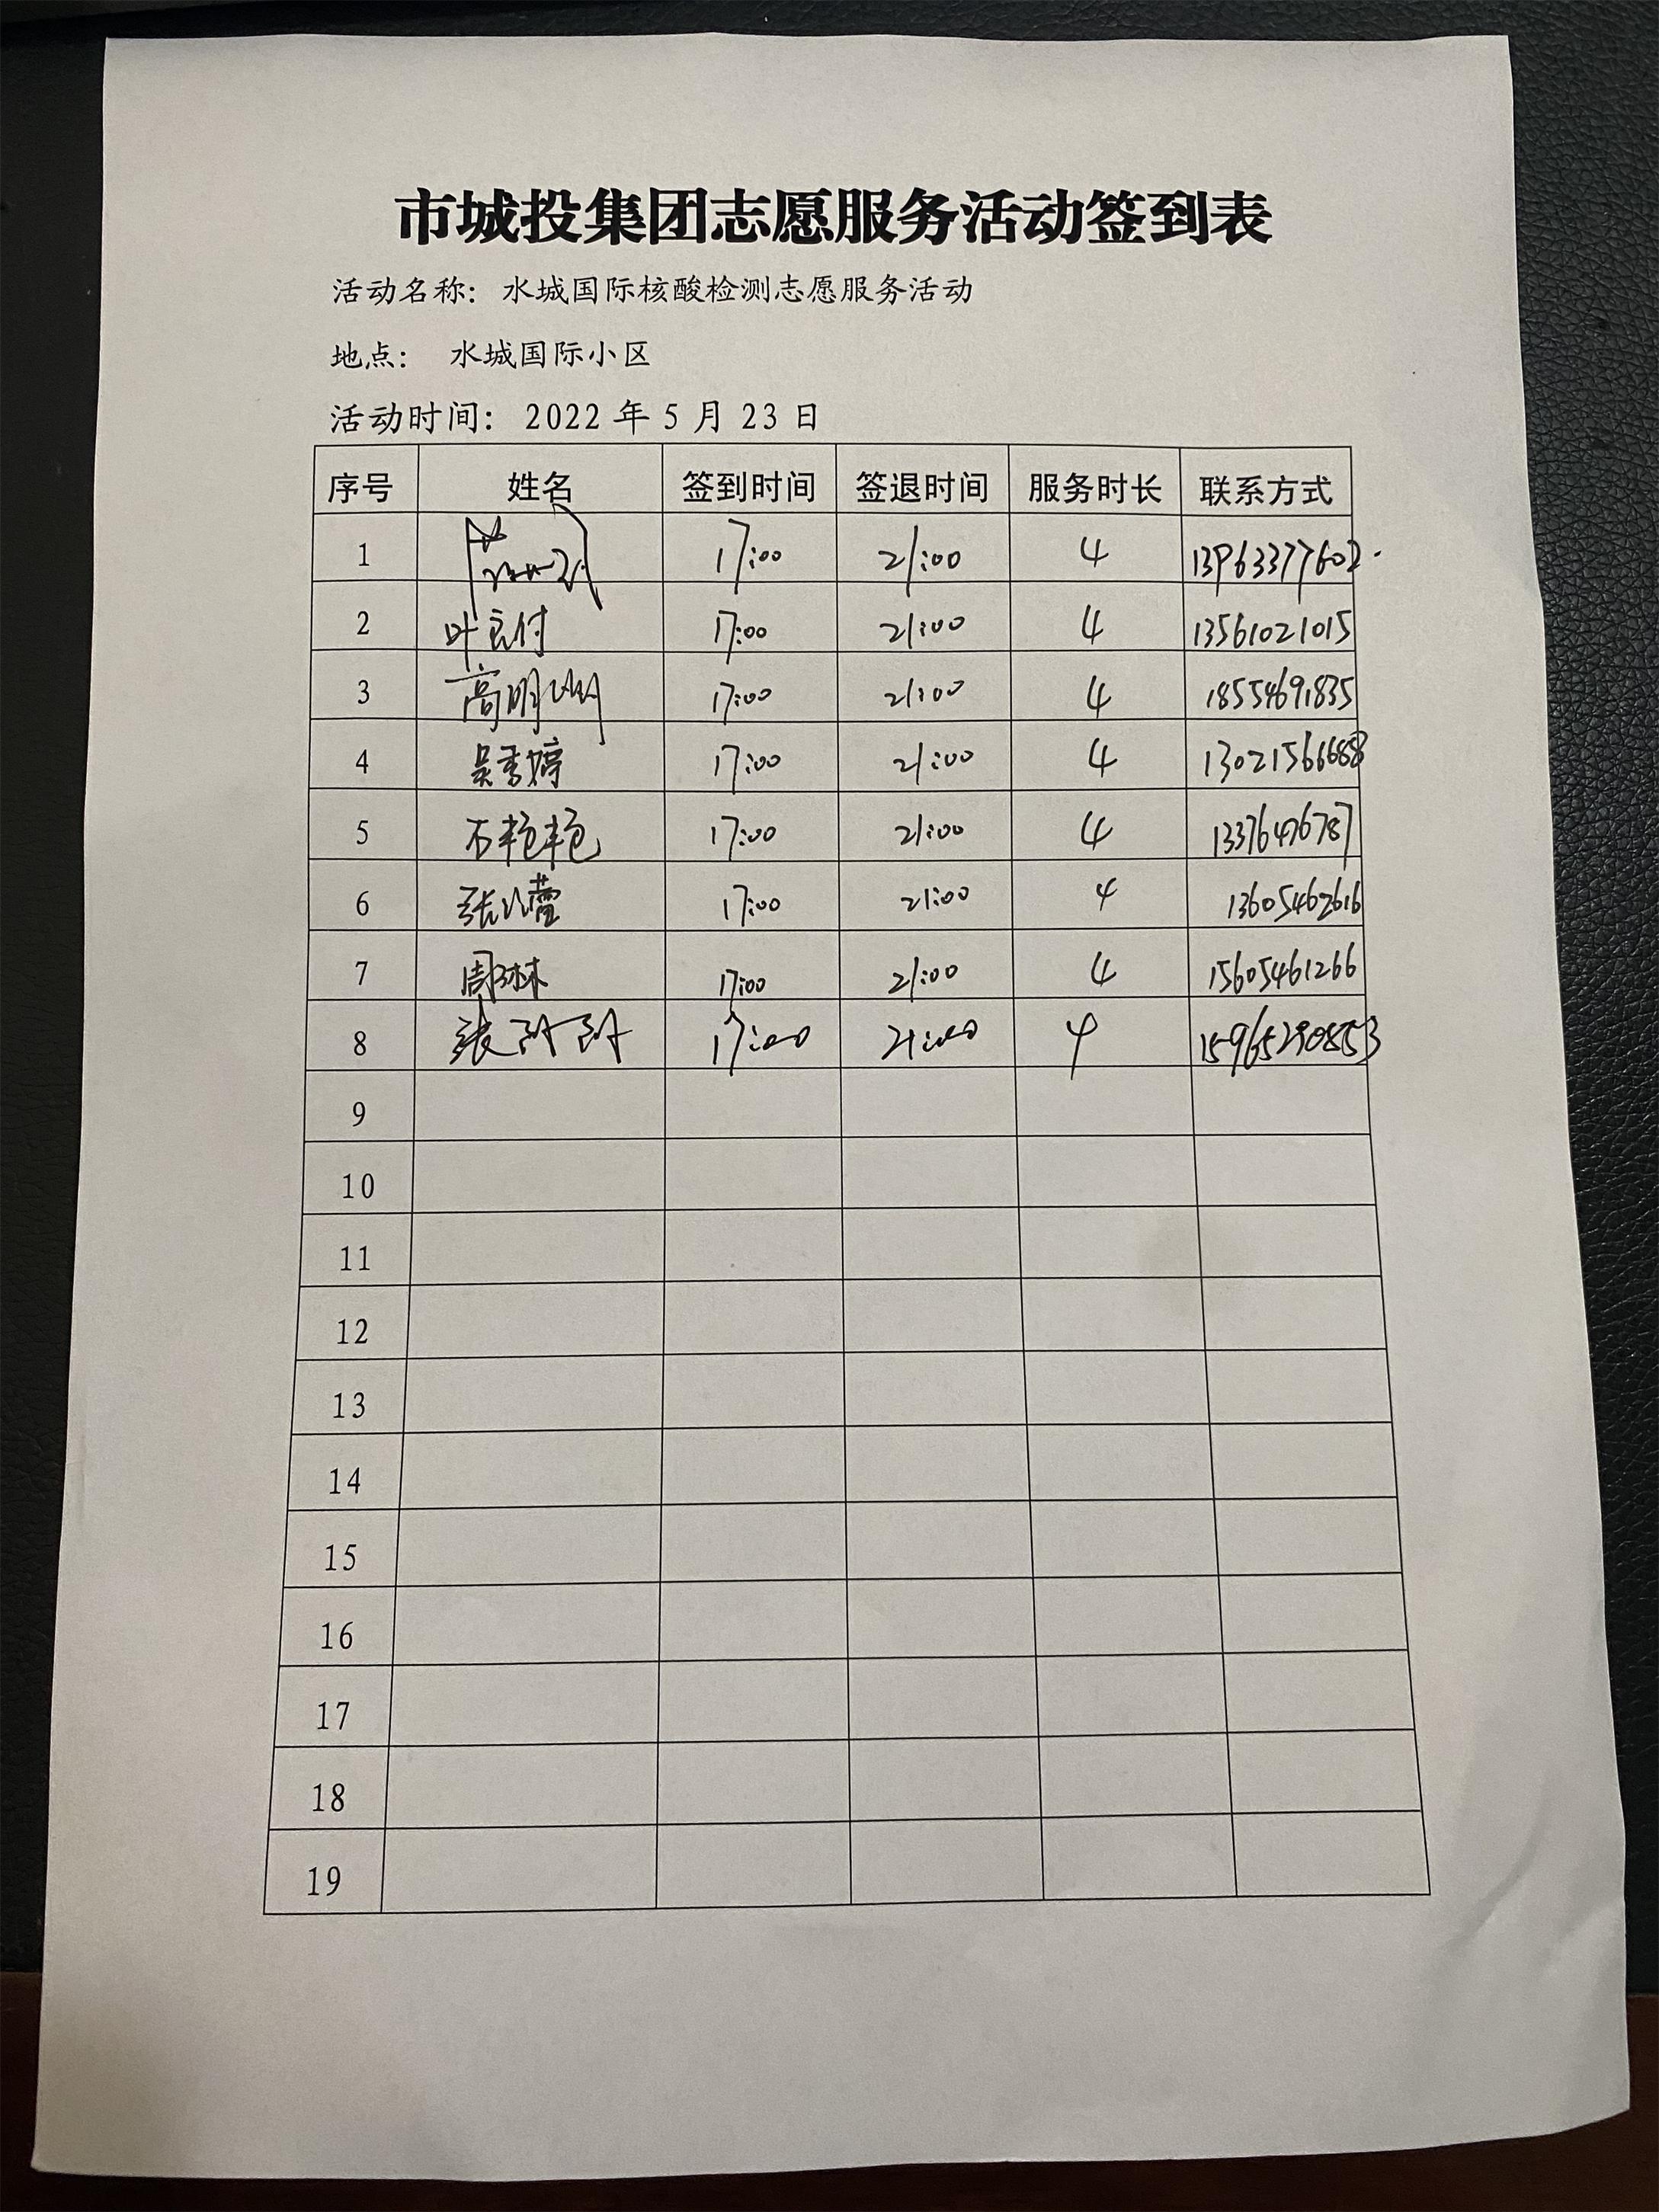 市城投集团志愿服务活动签到表
活动名称: 水城国际核酸检测志愿服务活动
地点: 水城国际小区
活动时间: 2022 年 5 月 23 日
序号 姓名 签到时间 签退时间 服务时长 联系方式
1 17:00 21:00 4 13963377602
2 叶良付 17:00 21:00 4 13561021015
3 高明 17:00 21:00 4 18554691835
4 吴秀婷 17:00 21:00 4 13021566688
5 石艳艳 17:00 21:00 4 13376476787
6 张 蕾 17:00 21:00 4 13605462616
7 周琳 17:00 21:00 4 15605461266
8 张 17:00 21:00 4 15965290853
9
10
11
12
13
14
15
16
17
18
19